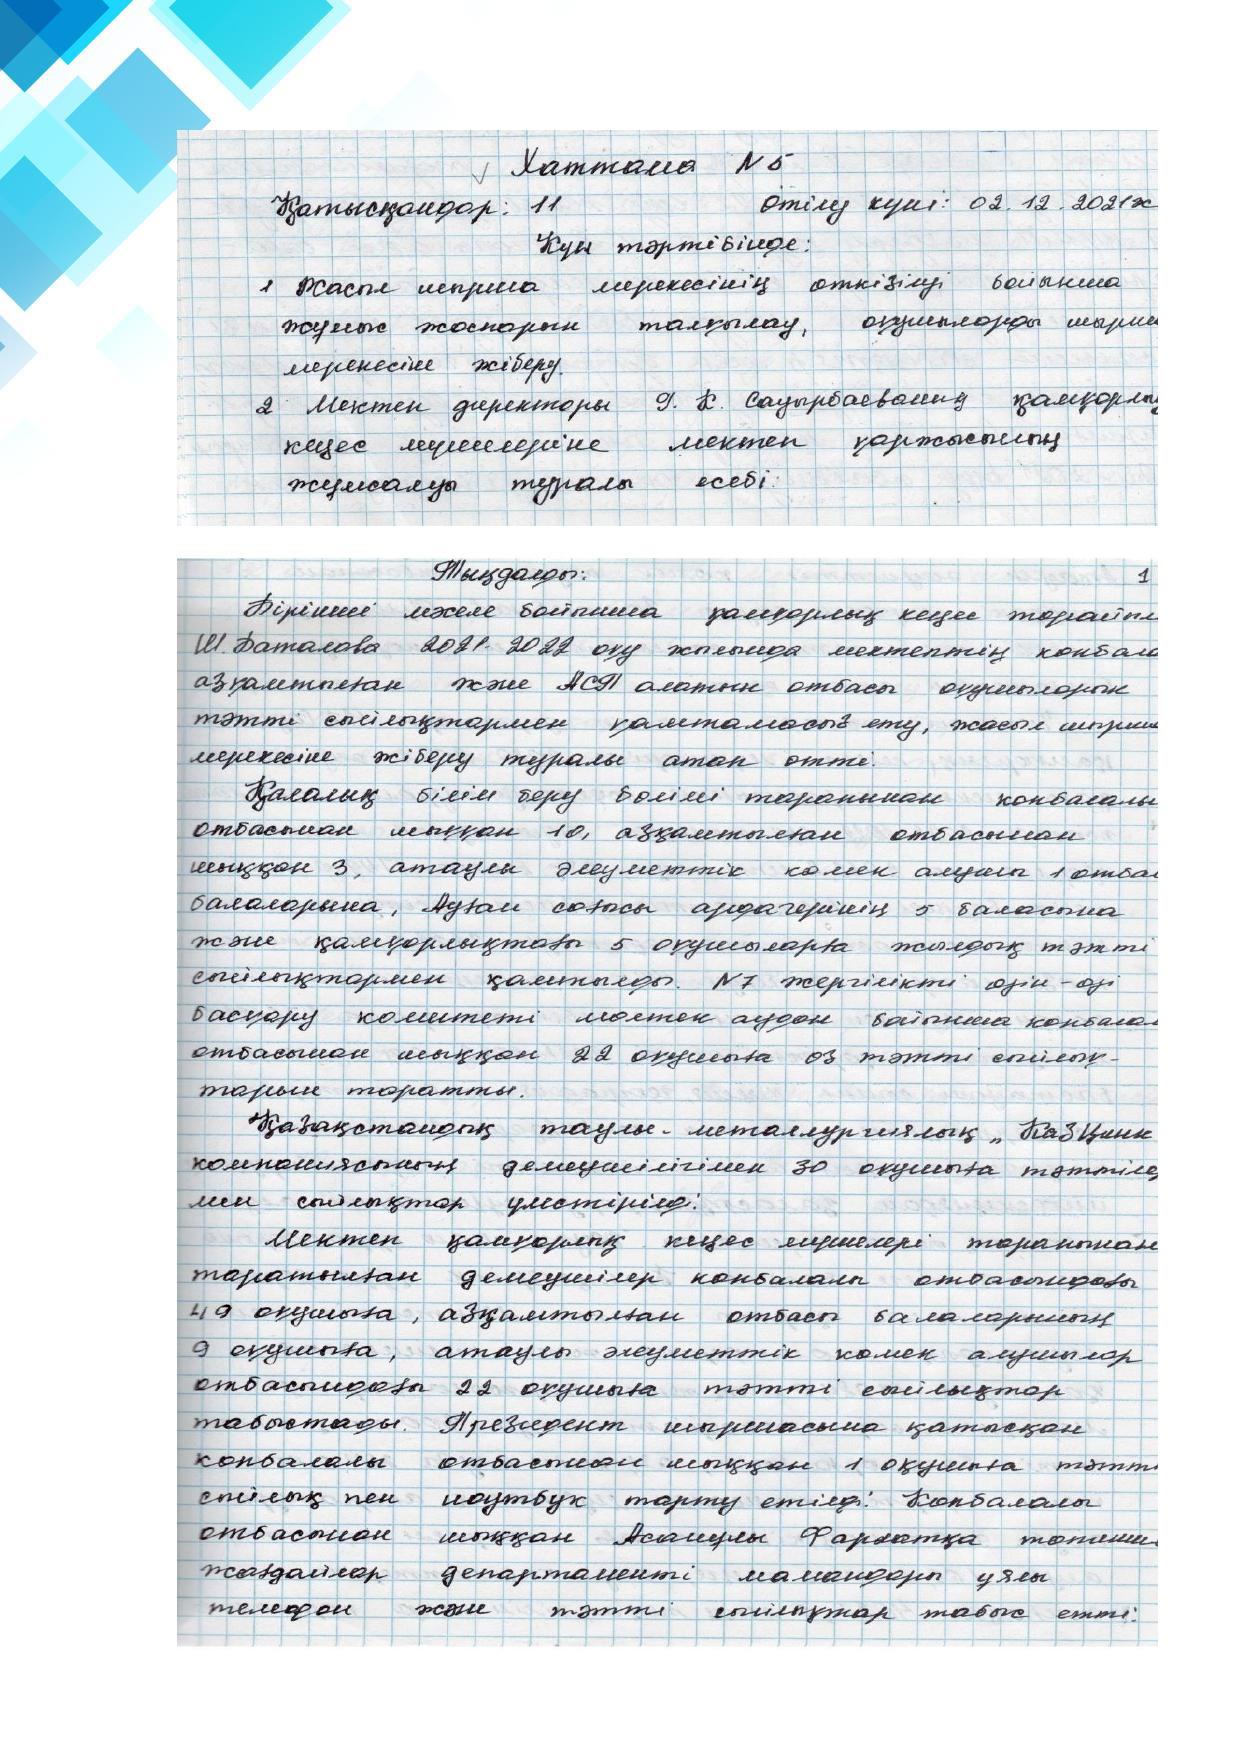 Хаттама N 5
Қатысқандар: 11 Өтілу күні: 02.12.2021ж
Күн тәртібінде:
1 Жасыл шырша мерекесінің өткізілуі бойынша
жұмыс жоспарын талқылау, оқушыларды шырша
мерекесіне жіберу.
2 Мектеп директоры Э. К. Сауырбаеваның қамқорлық
кеңес мүшелеріне мектеп қаржысының
жұмсалуы туралы есебі.
Тыңдалды: 1
Бірінші мәселе бойынша қамқорлық кеңес төрайымы
Ш. Баталова 2021-2022 оқу жылында мектептің көпбала
азқамтылған және АСП алатын отбасы оқушыларын
тәтті сыйлықтармен қамтамасыз ету, жасыл шырша
мерекесіне жіберу туралы атап өтті.
Қалалық білім беру бөлімі тарапынан көпбалалы
отбасынан шыққан 10, азқамтылған отбасынан
шыққан 3, атаулы әлеуметтік көмек алушы 1 отбас
балаларына, Ауған соғысы ардагерінің 5 баласына
және қамқорлықтағы 5 оқушыларға жылдық тәтті
сыйлықтармен қамтылды. N7 жергілікті өзін-өзі
басқару комитеті мөлтек аудан бойынша көпбалал
отбасынан шыққан 22 оқушыға өз тәтті сыйлық-
тарын таратты.
Қазақстандық таулы-металлургиялық „КазЦинк
компаниясының демеушілігімен 30 оқушыға тәттілер
мен сыйлықтар үлестірілді.
Мектеп қамқорлық кеңес мүшелері тарапынан
таратылған демеушілер көпбалалы отбасындағы
49 оқушыға, азқамтылған отбасы балаларының
9 оқушыға, атаулы әлеуметтік көмек алушылар
отбасындағы 22 оқушыға тәтті сыйлықтар
табыстады. Президент шыршасына қатысқан
көпбалалы отбасынан шыққан 1 оқушыға тәтті
сыйлық пен ноутбук тарту етілді. Көпбалалы
отбасынан шыққан Асанұлы Фархатқа төтенше
жағдайлар департаменті мамандары ұялы
телефон және тәтті сыйлықтар табыс етті.